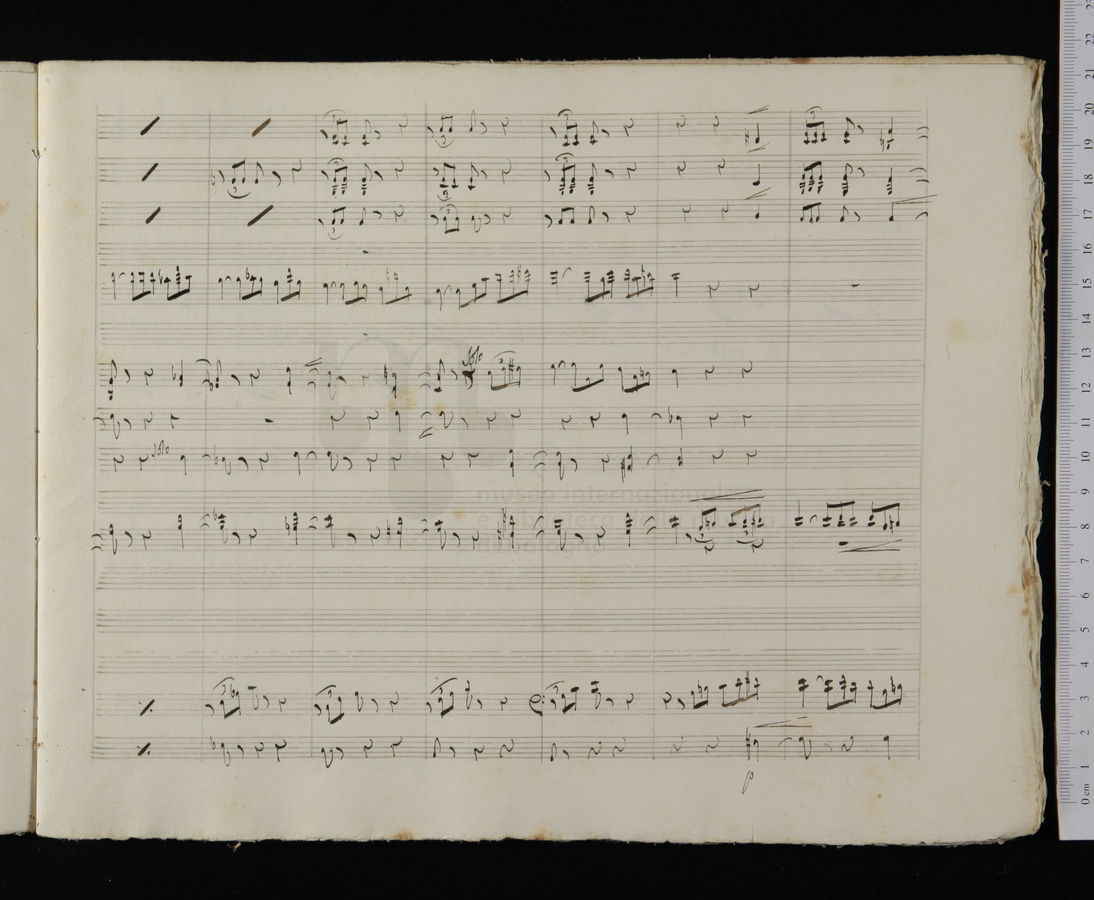 Solo
Solo
museo internazionale
p
0 cm 1 2 3 4 5 6 7 8 9 10 11 12 13 14 15 16 17 18 19 20 21 22